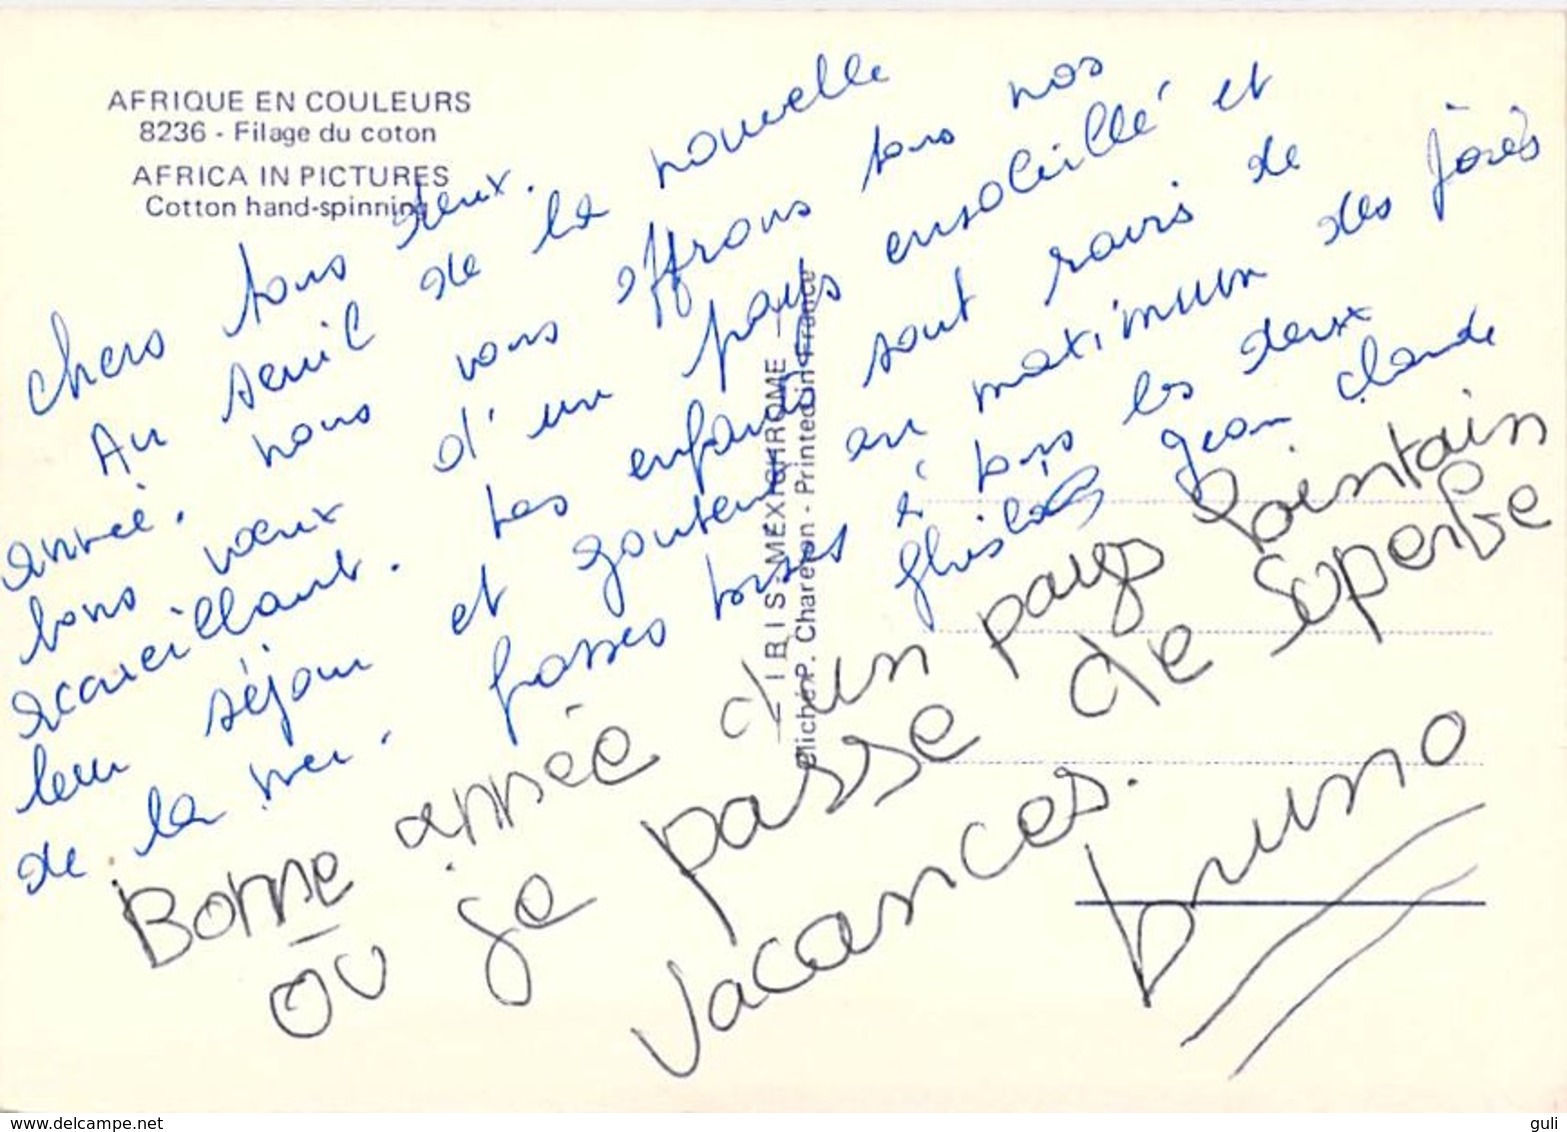 AFRIQUE EN COULEURS
8236 - Filage du coton
AFRICA IN PICTURES
Cotton hand-spinning
chers tous deux.
Au seuil de la nouvelle
année, nous vous offrons tous nos
bons vœux d'un pays ensoleillé et
accueillant. Les enfants sont ravis de
leur séjour et goutent au maximum des joies
de la mer. grosses bises à tous les deux
Jean Claude
Bonne année d'un pays lointain
où je passe de superbe
vacances.
bruno
— IRIS - MEXICHROME —
Cliché P. Chareton - Printed in France
www.delcampe.net
guli